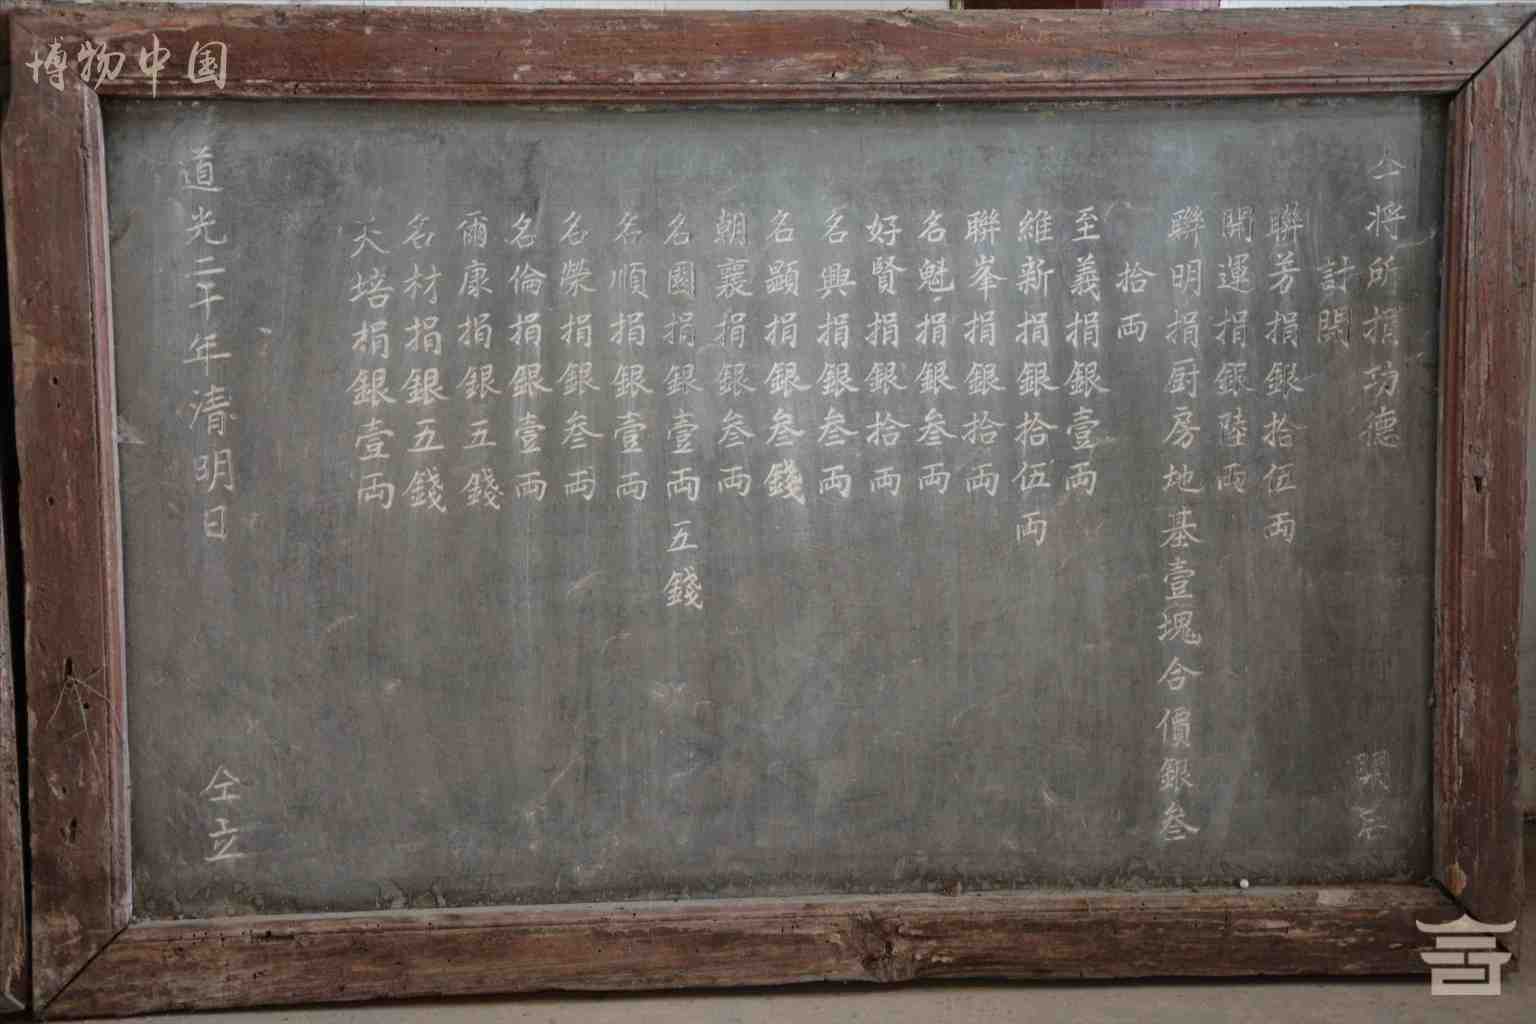 今將所捐功德 開於
計開
聯芳捐銀拾伍両
開運捐銀陸両
聯明捐厨房地基壹塊合價銀叁
拾両
至義捐銀壹両
維新捐銀拾伍両
聯峯捐銀拾両
名魁捐銀叁両
好賢捐銀拾両
名興捐銀叁両
名顕捐銀叁錢
朝襄捐銀叁両
名國捐銀壹両五錢
名順捐銀壹両
名榮捐銀叁両
名倫捐銀壹両
爾康捐銀五錢
名材捐銀五錢
天培捐銀壹両
道光二十年清明日 仝立
博物中国